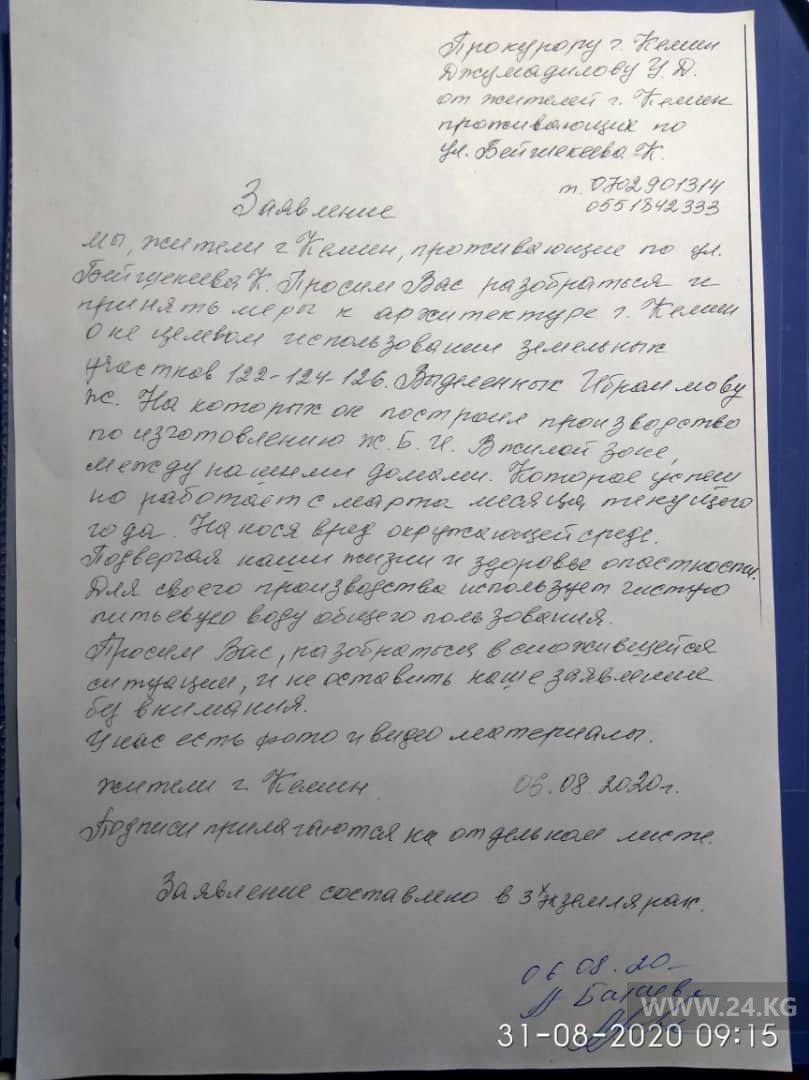 Прокурору г. Кемин
Джумадилову У. Д.
от жителей г. Кемин
проживающих по
ул. Бейшекеева К.
т. 0702901314
0551842333
Заявление
мы, жители г Кемин, проживающие по ул.
Бейшекеева К. Просим Вас разобраться и
принять меры к архитектуре г. Кемин
о не целевом использовании земельных
участков 122-124-126. Выделенных Ибраимову
Ж. На которых он построил производство
по изготовлению Ж. Б. И. В жилой зоне,
между нашими домами. Которое успеш
но работает с марта месяца, текущего
года. На нося вред окружающей среде.
Подвергая наши жизни и здоровье опастности.
Для своего производства использует чистую
питьевую воду общего пользования.
Просим Вас, разобраться в сложившейся
ситуации, и не оставить наше заявление
без внимания.
У нас есть фото и видео материалы.
жители г. Кемин. 06.08.2020г.
Подписи прилагаются на отдельном листе.
Заявление составлено в 3х экземлярах.
06 08.20
WWW.24.KG
31-08-2020 09:15